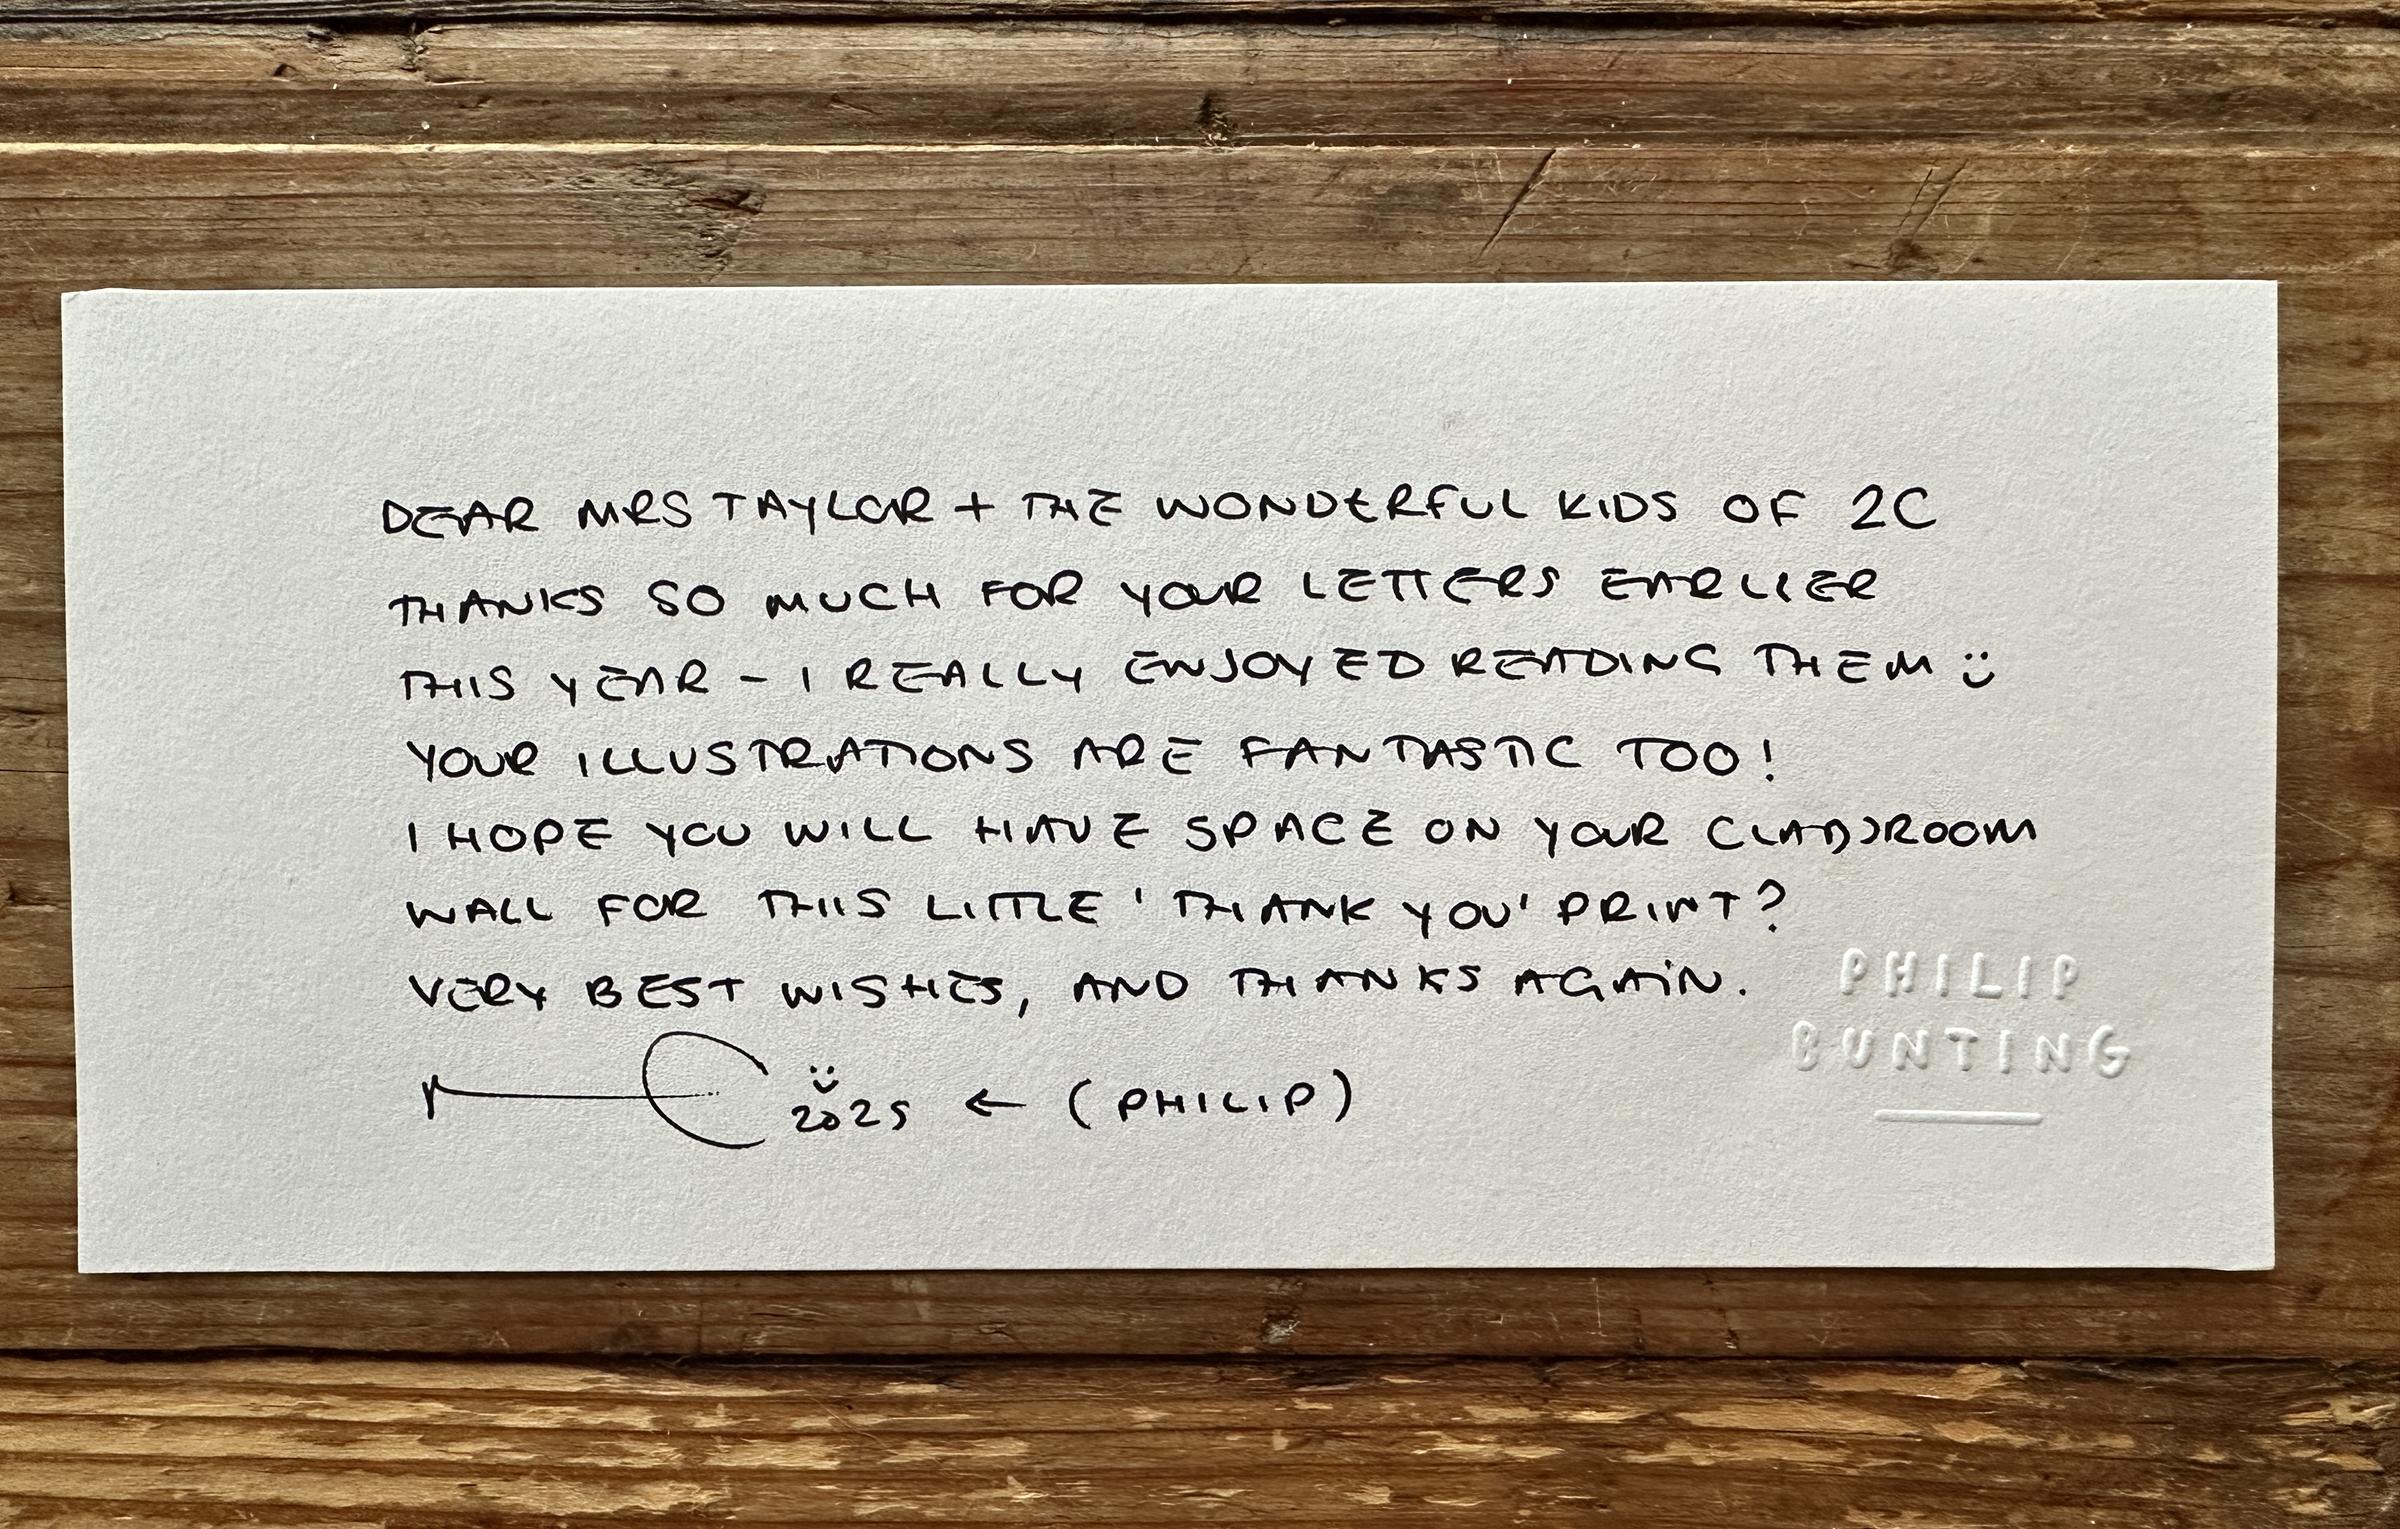 DEAR MRS TAYLOR + THE WONDERFUL KIDS OF 2C
THANKS SO MUCH FOR YOUR LETTERS EARLIER
THIS YEAR - I REALLY ENJOYED READING THEM :)
YOUR ILLUSTRATIONS ARE FANTASTIC TOO!
I HOPE YOU WILL HAVE SPACE ON YOUR CLASSROOM
WALL FOR THIS LITTLE 'THANK YOU' PRINT?
VERY BEST WISHES, AND THANKS AGAIN.
:)
2025 ← (PHILIP)
PHILIP
BUNTING